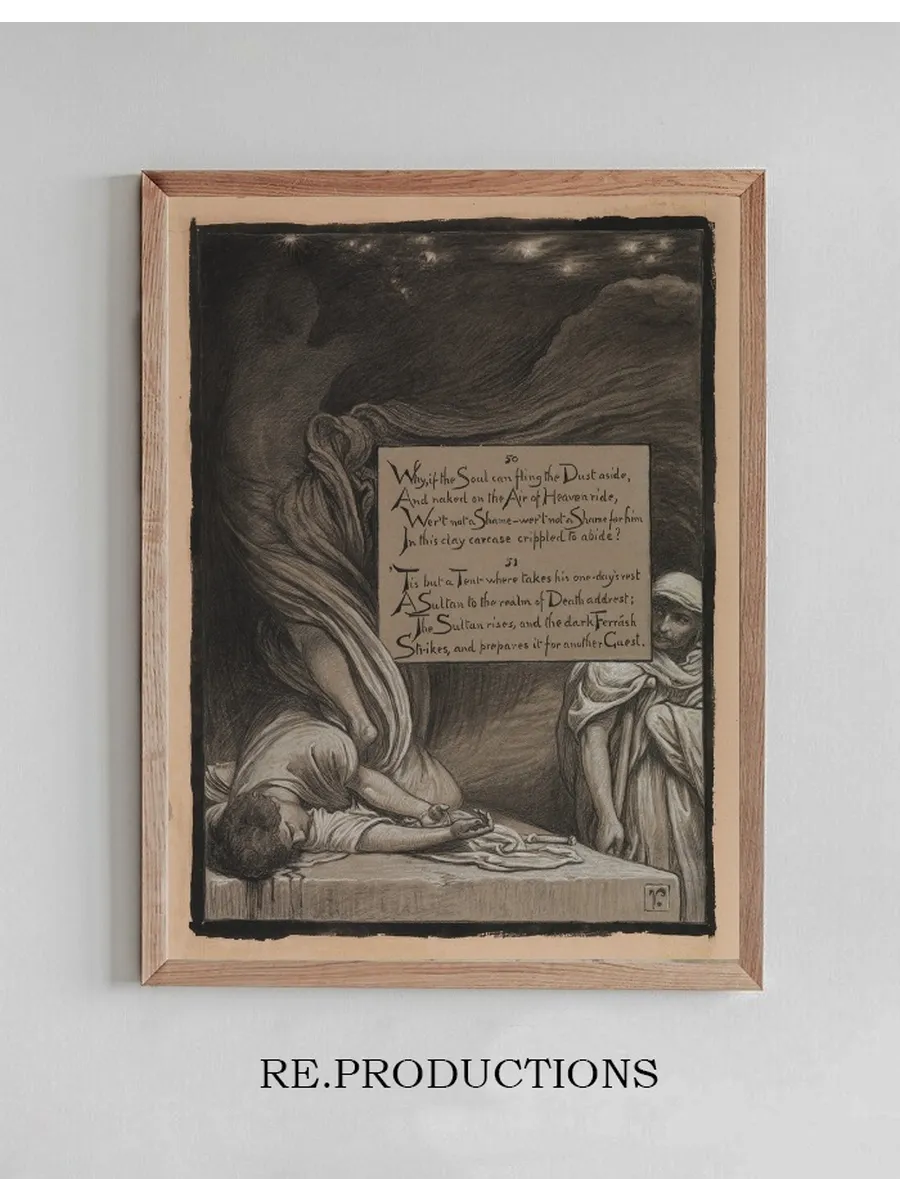 50
Why, if the Soul can fling the Dust aside,
And naked on the Air of Heaven ride,
Wer't not a Shame—wer't not a Shame for him
In this clay carcase crippled to abide?
51
'Tis but a Tent where takes his one-day's rest
A Sultan to the realm of Death addrest;
The Sultan rises, and the dark Ferrásh
Strikes, and prepares it for another Guest.
V
RE.PRODUCTIONS